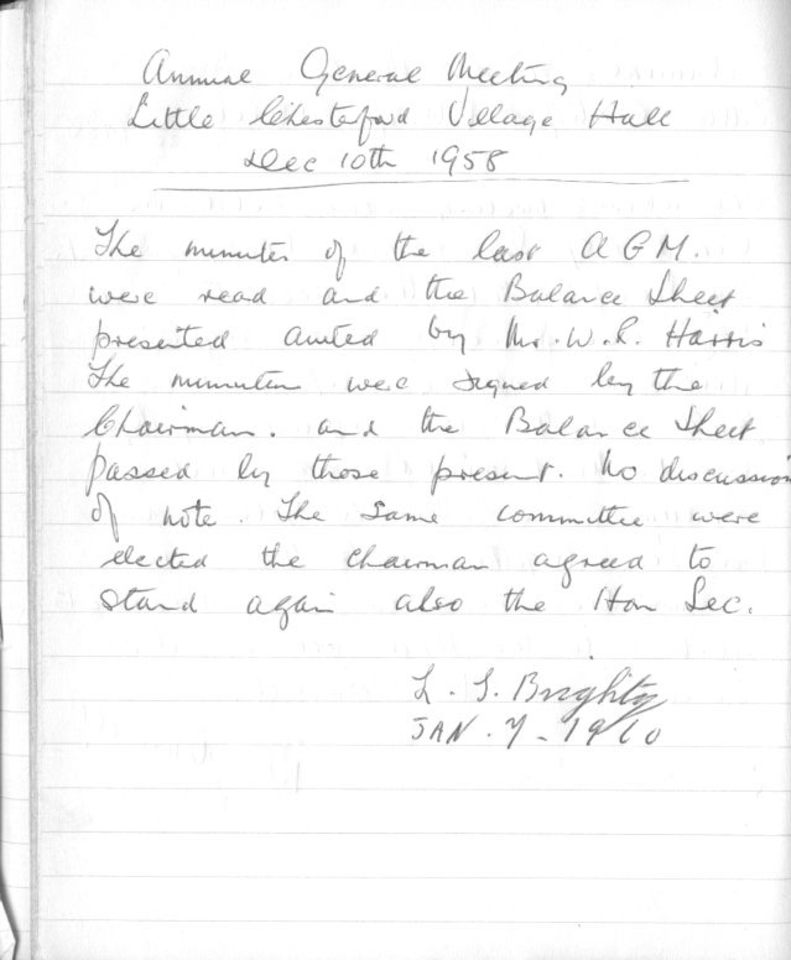 Annual General Meeting
Little Chesterford Village Hall
Dec 10th 1958
The minutes of the last A G M.
were read and the Balance Sheet
presented by Mr. W. R. Harris
The minutes were signed by the
Chairman. and the Balance Sheet
passed by those present. No discussion
of note. The same committee were
elected the Chairman agreed to
stand again also the Hon Sec.
Brighty
JAN. 7 - 1960